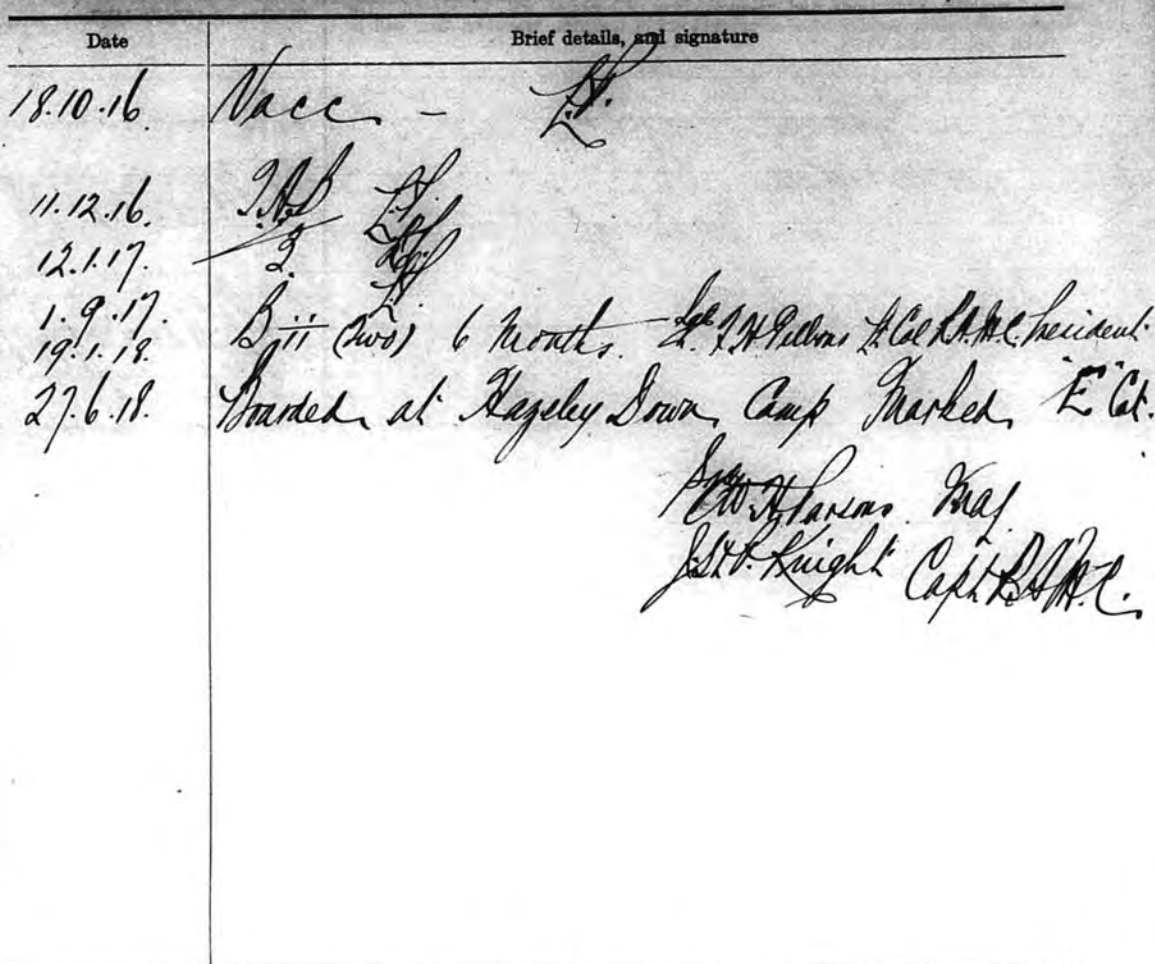 Date Brief details, and signature
18.10.16. Vacc -
11.12.16. T.A.B
12.1.17. 2.
1.9.17.
19.1.18. B ii (two) 6 Months. Lt Col R.A.M.C. President
27.6.18. Boarded at Hazeley Down Camp Marked "E" Cat.
W. H. Parsons Maj
J. St. P. Knight Capt R.A.M.C.